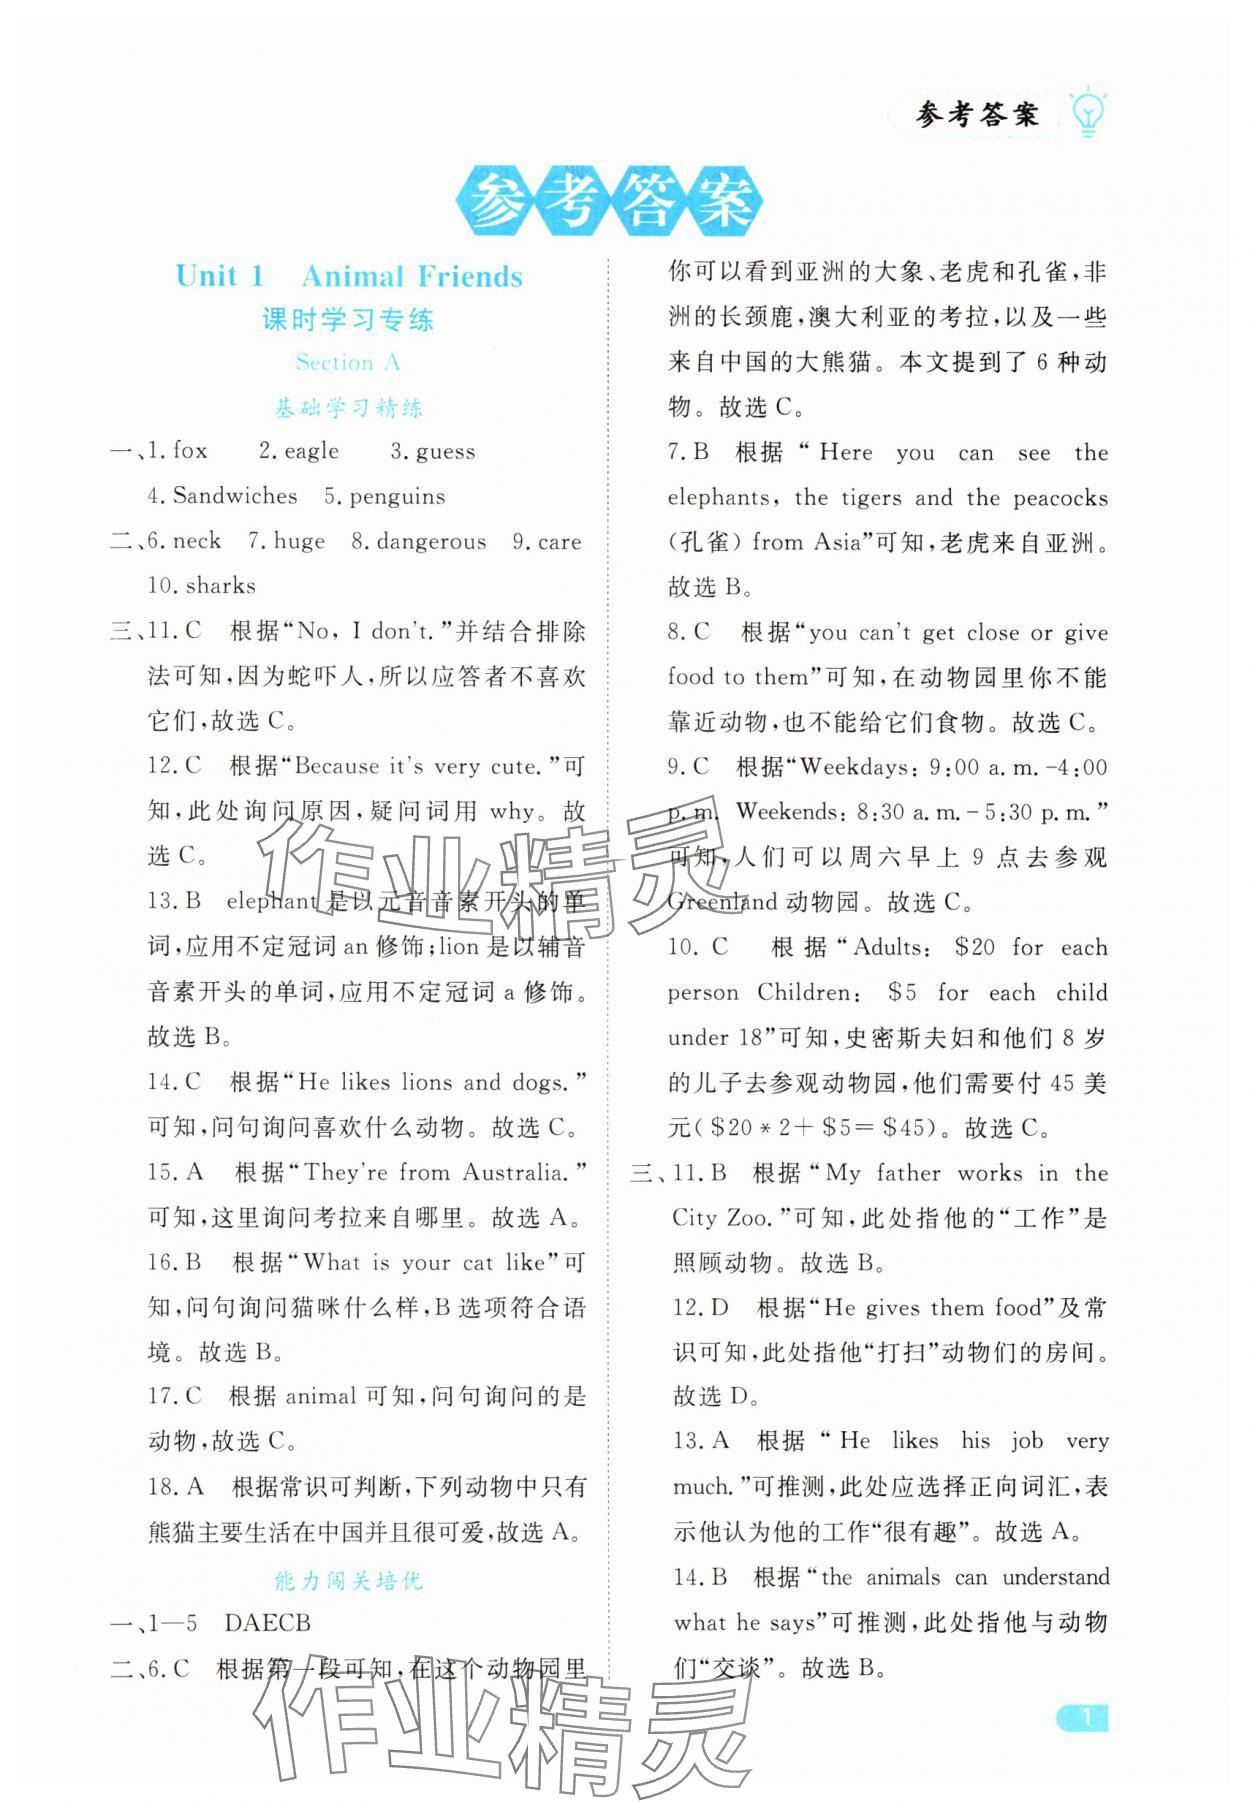 参考答案
参考答案
Unit 1 Animal Friends
课时学习专练
Section A
基础学习精练
一、1. fox 2. eagle 3. guess
4. Sandwiches 5. penguins
二、6. neck 7. huge 8. dangerous 9. care
10. sharks
三、11. C 根据“No, I don't.”并结合排除
法可知,因为蛇吓人,所以应答者不喜欢
它们,故选 C。
12. C 根据“Because it's very cute.”可
知,此处询问原因,疑问词用 why。故
选 C。
13. B elephant 是以元音音素开头的单
词,应用不定冠词 an 修饰;lion 是以辅音
音素开头的单词,应用不定冠词 a 修饰。
故选 B。
14. C 根据“He likes lions and dogs.”
可知,问句询问喜欢什么动物。故选 C。
15. A 根据“They're from Australia.”
可知,这里询问考拉来自哪里。故选 A。
16. B 根据“What is your cat like”可
知,问句询问猫咪什么样,B 选项符合语
境。故选 B。
17. C 根据 animal 可知,问句询问的是
动物,故选 C。
18. A 根据常识可判断,下列动物中只有
熊猫主要生活在中国并且很可爱,故选 A。
能力闯关培优
一、1—5 DAECB
二、6. C 根据第一段可知,在这个动物园里
你可以看到亚洲的大象、老虎和孔雀,非
洲的长颈鹿,澳大利亚的考拉,以及一些
来自中国的大熊猫。本文提到了 6 种动
物。故选 C。
7. B 根据“Here you can see the
elephants, the tigers and the peacocks
(孔雀) from Asia”可知,老虎来自亚洲。
故选 B。
8. C 根据“you can't get close or give
food to them”可知,在动物园里你不能
靠近动物,也不能给它们食物。故选 C。
9. C 根据“Weekdays: 9:00 a. m. -4:00
p. m. Weekends: 8:30 a. m. - 5:30 p. m.”
可知,人们可以周六早上 9 点去参观
Greenland 动物园。故选 C。
10. C 根据“Adults: $20 for each
person Children: $5 for each child
under 18”可知,史密斯夫妇和他们 8 岁
的儿子去参观动物园,他们需要付 45 美
元($20 * 2+ $5= $45)。故选 C。
三、11. B 根据“My father works in the
City Zoo.”可知,此处指他的“工作”是
照顾动物。故选 B。
12. D 根据“He gives them food”及常
识可知,此处指他“打扫”动物们的房间。
故选 D。
13. A 根据“He likes his job very
much.”可推测,此处应选择正向词汇,表
示他认为他的工作“很有趣”。故选 A。
14. B 根据“the animals can understand
what he says”可推测,此处指他与动物
们“交谈”。故选 B。
作业精灵
作业精灵
1